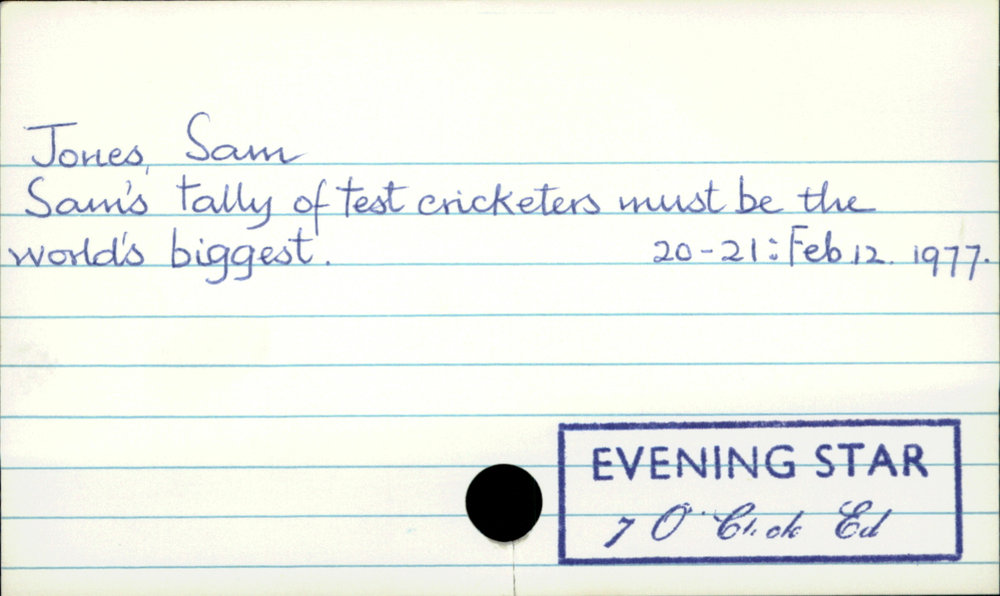 Jones, Sam
Sam's tally of test cricketers must be the
world's biggest. 20-21: Feb 12. 1977.
EVENING STAR
7 O' Ed